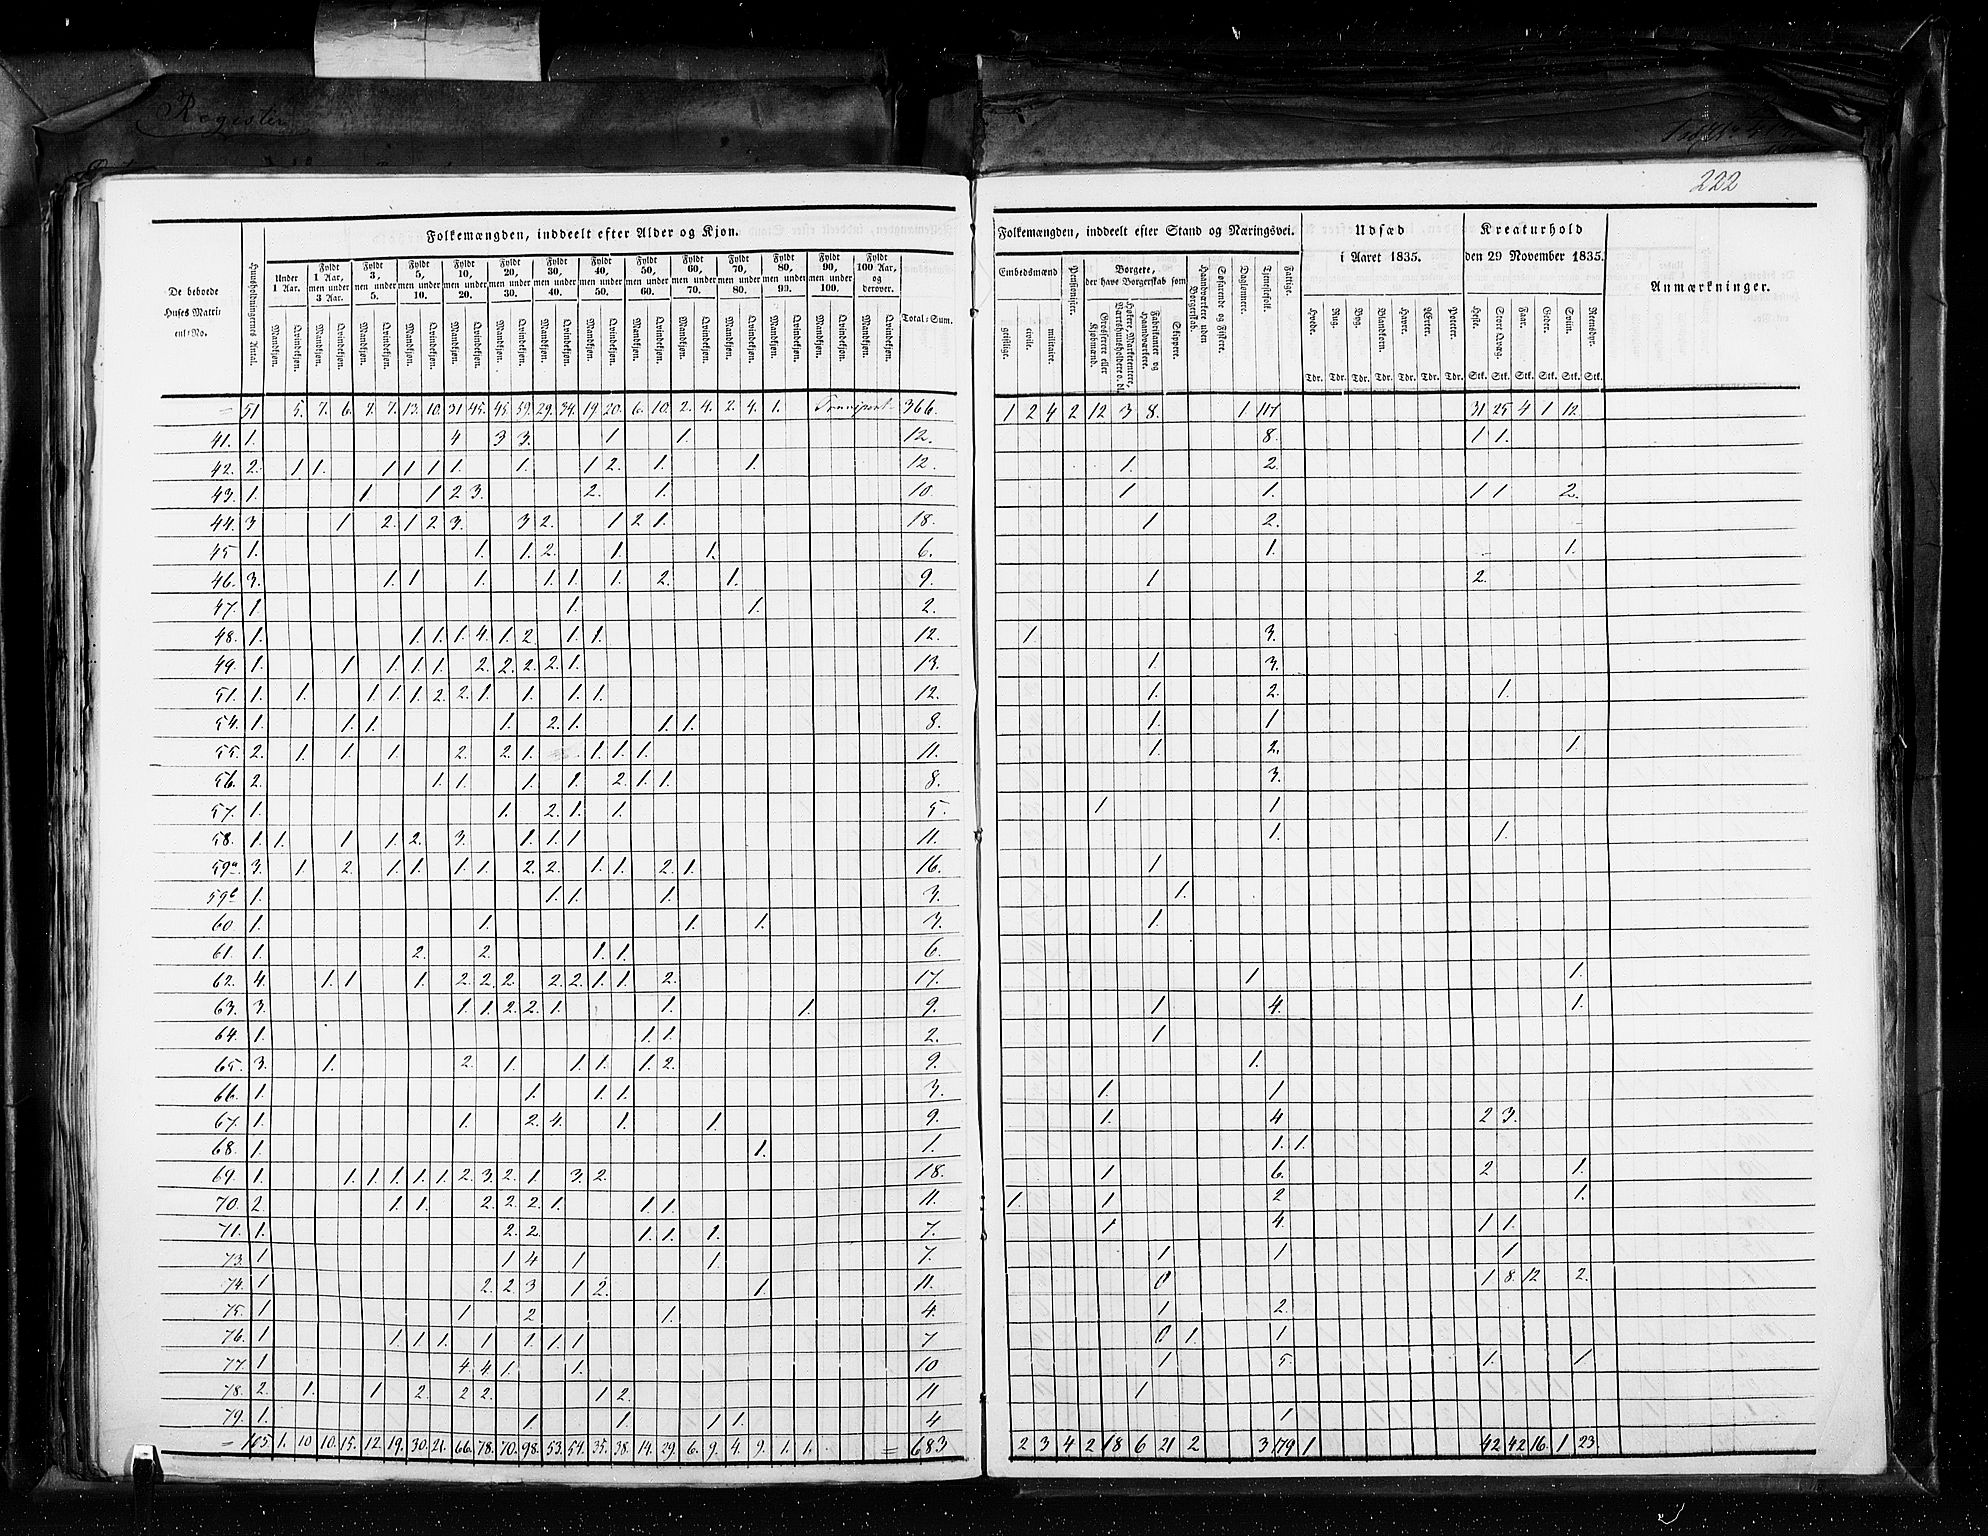 Register
222
Folkemængden, inddeelt efter Alder og Kjøn.
De beboede Huses Matricul-No.
Huusholdningernes Antal.
Under 1 Aar.
Fyldt 1 Aar, men under 3 Aar.
Fyldt 3, men under 5.
Fyldt 5, men under 10.
Fyldt 10, men under 20.
Fyldt 20, men under 30.
Fyldt 30, men under 40.
Fyldt 40, men under 50.
Fyldt 50, men under 60.
Fyldt 60, men under 70.
Fyldt 70, men under 80.
Fyldt 80, men under 90.
Fyldt 90, men under 100.
Fyldt 100 Aar, og derover.
Mandkjøn. Qvindekjøn.
Total-Sum.
Folkemængden, inddeelt efter Stand og Næringsvei.
Embedsmænd
geistlige. civile. militaire.
Pensionister.
Borgere, der have Borgerskab som
Grosserere eller Kjøbmænd.
Høkere, Marketentere, Værtshuusholdere o. dl.
Fabrikanter og Haandværkere
Skippere.
Haandværkere uden Borgerskab.
Søfarende og Fiskere.
Daglønnere.
Tjenestefolk.
Fattige.
Udsæd i Aaret 1835.
Hvede. Rug. Byg. Blandkorn. Havre. Ærter. Poteter.
Tdr. Tdr. Tdr. Tdr. Tdr. Tdr. Tdr.
Kreaturhold den 29 November 1835.
Heste. Stort Qvæg. Faar. Geder. Sviin. Reensdyr.
Stk. Stk. Stk. Stk. Stk. Stk.
Anmærkninger.
51 5. 7. 6. 7. 7. 13. 10. 31 45. 45. 59. 29. 34. 19. 20. 6. 10. 2. 4. 2. 4. 1. Transport 366. 1 2 4 2 12 3 8. 1 117 31 25 4 1 12.
41. 1. 4 3 3. 1 1. 12. 8. 1 1.
42. 2. 1 1. 1 1 1 1. 1. 1 2. 1. 1. 12. 1. 2.
43. 1. 1. 1 2 3. 2. 1. 10 1 1. 1 1 2.
44. 3 1 2. 1 2 3. 3 2. 1 2 1. 18. 1 2.
45 1. 1. 1. 2. 1. 1. 6. 1. 1.
46. 3. 1. 1 1. 1. 1. 1. 2. 1. 9. 1 2.
47. 1. 1. 1. 2.
48. 1. 1. 1. 1. 4. 1. 2 1. 1. 12. 1. 3.
49. 1. 1 1. 1. 1. 2. 2. 2. 2. 1. 13. 1. 3.
51. 1. 1. 1 1. 1 2 2. 1 1. 1. 1. 12. 1. 2. 1.
54. 1. 1. 1. 1. 2. 1. 1. 1. 8. 1. 1
55. 2. 1 1. 1 2. 2. 1. 1. 1. 1. 11. 1. 2. 1.
56. 2. 1. 1. 1. 1. 2. 1. 1 8. 3.
57. 1. 1. 2. 1. 1. 5. 1 1
58. 1. 1. 1 1. 2. 3. 1. 1. 1 11. 1. 1.
59a. 3. 1. 2. 1. 1. 1. 1. 2. 2. 1. 1. 2. 1. 16. 1
59b 1. 1. 1. 1. 3. 1.
60. 1. 1. 1. 1. 3. 1.
61. 1. 2. 2. 1. 1. 6.
62. 4. 1. 1 1. 2. 2. 2. 2. 2. 1. 1. 2. 17. 1 1.
63. 3. 1. 1. 2. 2. 1. 1. 1. 9. 1 4. 1.
64. 1. 1. 1. 2. 1
65. 3. 1. 2. 1. 1. 1. 1. 2. 9. 1.
66. 1. 1. 1. 1. 3. 1. 1
67. 1. 1. 2. 4. 1. 1. 9. 1. 4 2 3.
68. 1. 1. 1. 1. 1.
69. 1. 1. 1. 1. 1. 1. 2. 3. 2. 1 3. 2. 18. 1 6. 2 1.
70. 2. 1. 1. 2. 2. 2. 1. 1. 1. 11. 1. 1 2 1.
71. 1. 2. 2. 1. 1. 1. 7. 1 4. 1 1.
73. 1 1 4 1 1. 7. 1 1 1
74. 1 2. 2 3 1 2. 1. 11. 0 1 8. 12 2.
75. 1 1 2 1. 4. 1 2.
76. 1 1. 1. 1. 1 1. 1. 1 7 0 1. 1
77. 1 4. 4. 1. 1. 10 1 5. 1. 1
78. 2. 1. 1 2. 2 2. 1 2. 11 1
79. 1. 1 1. 1 1. 4 1
105. 1. 10 10. 15. 12. 19. 30. 21. 66. 78. 70. 98. 53. 54. 35. 38. 14. 29. 6. 9. 4. 9. 1. 1. = 683 2 3 4 2 18 6 21 2 3 179 1 42 42 16. 1 23.